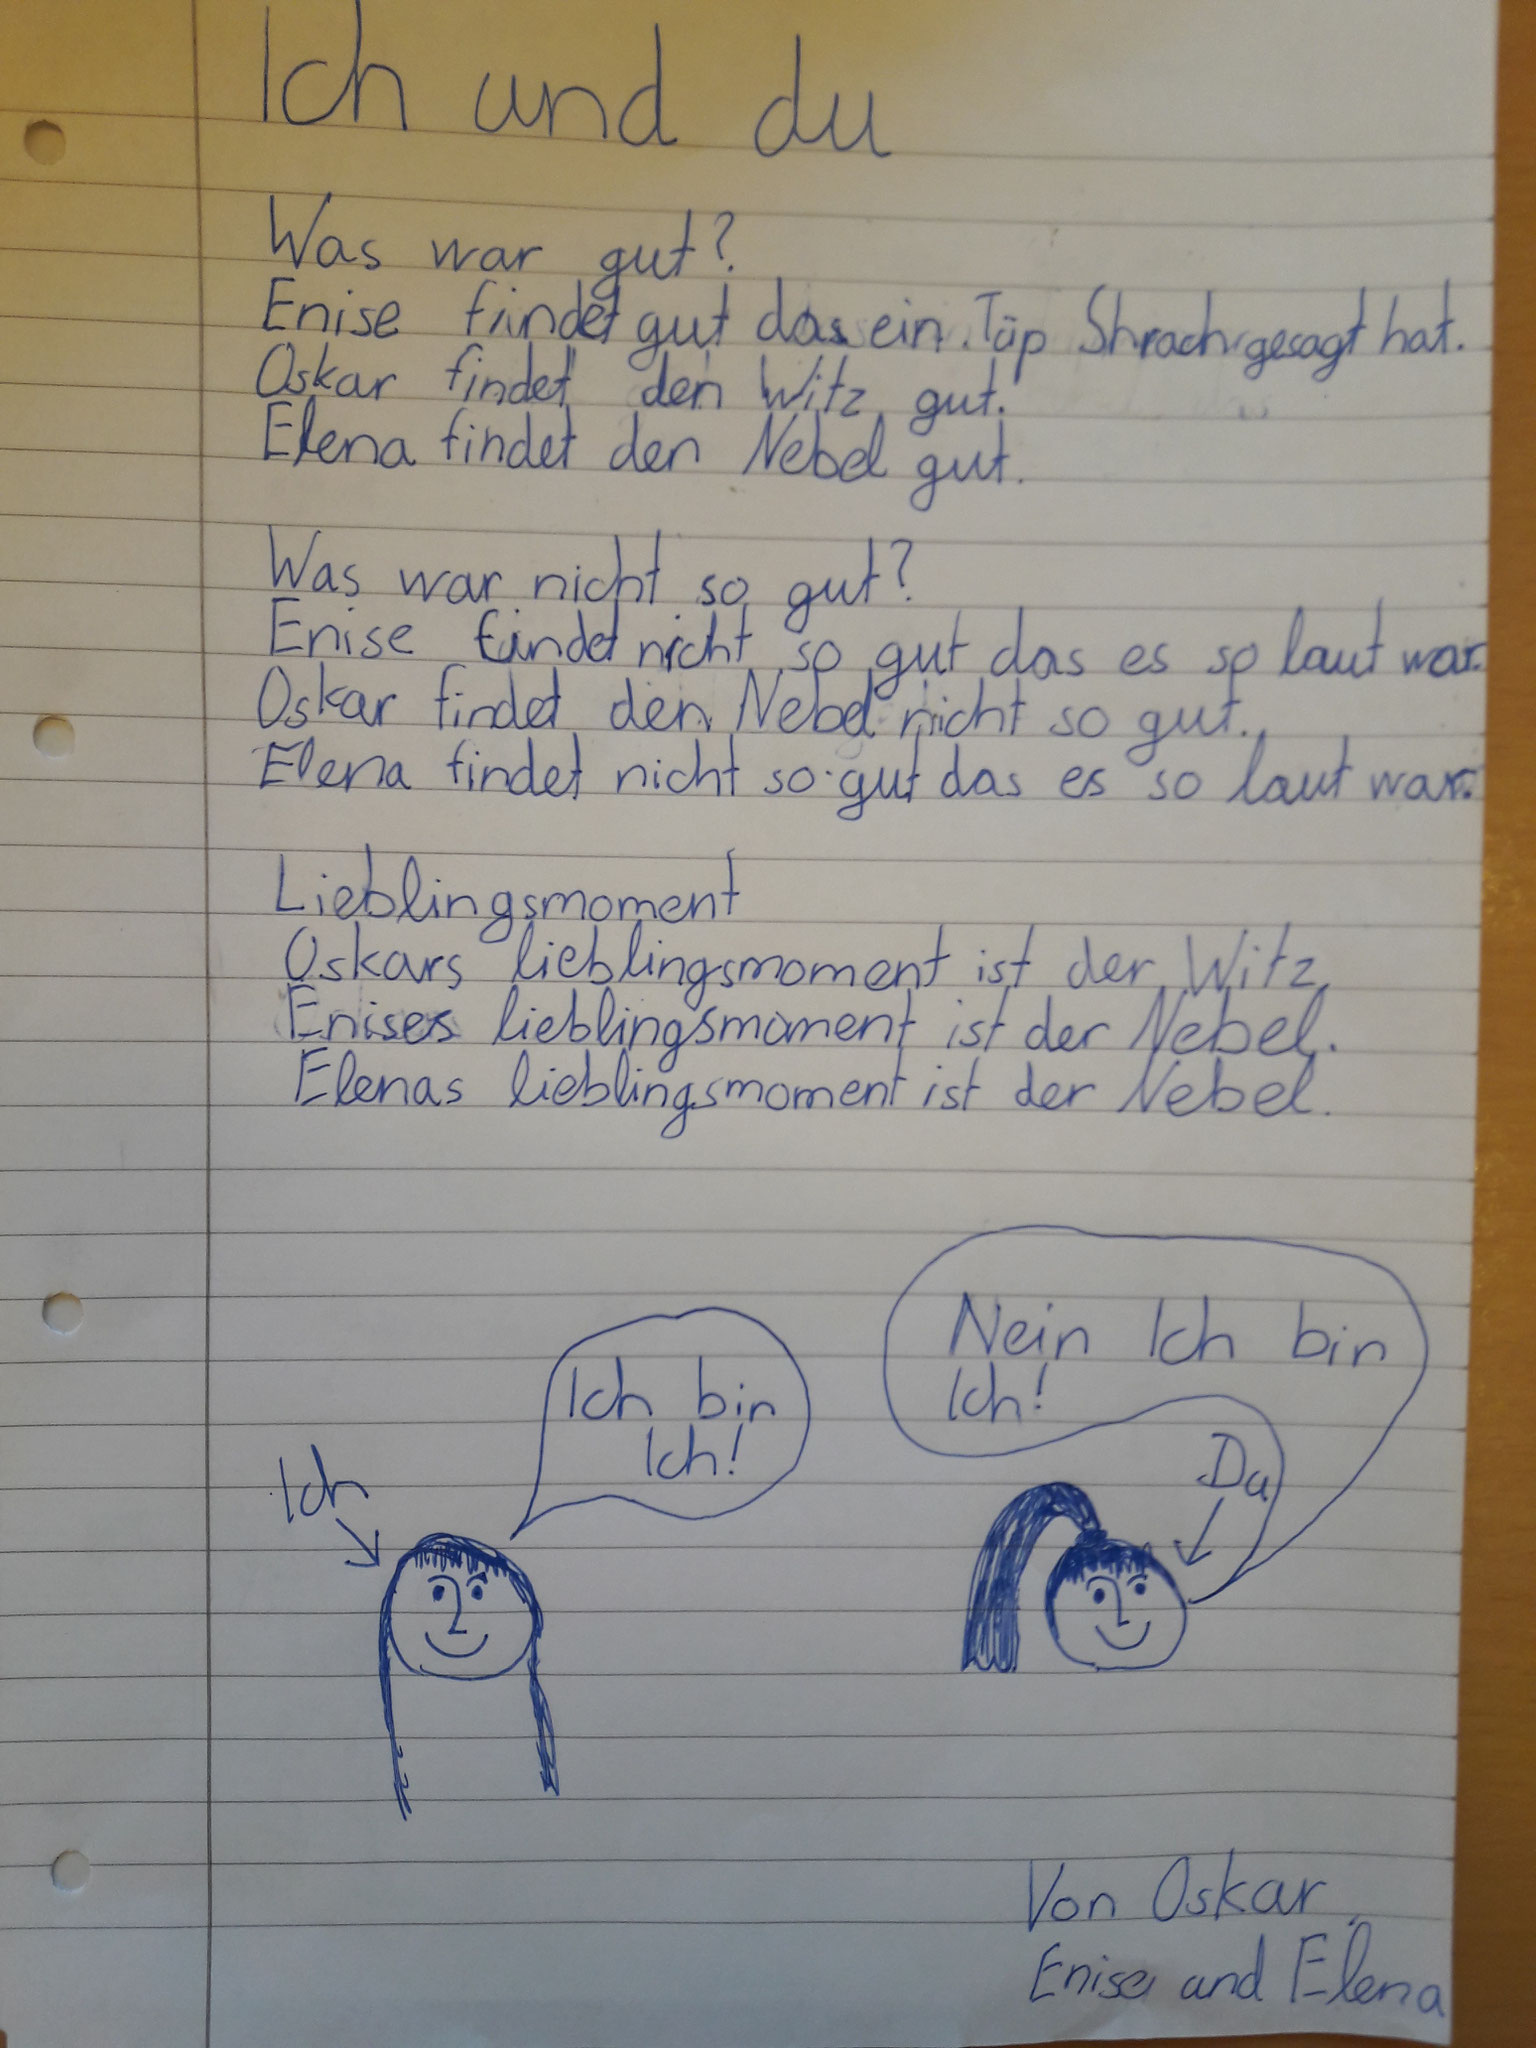 Ich und du
Was war gut?
Enise findet gut das ein Täp Shrach gesagt hat.
Oskar findet den Witz gut.
Elena findet den Nebel gut.
Was war nicht so gut?
Enise findet nicht so gut das es so laut war.
Oskar findet den Nebel nicht so gut.
Elena findet nicht so gut das es so laut war.
Lieblingsmoment
Oskars lieblingsmoment ist der Witz.
Enises lieblingsmoment ist der Nebel.
Elenas lieblingsmoment ist der Nebel.
Ich bin
Ich!
Nein Ich bin
Ich!
Ich
Du
Von Oskar,
Enise und Elena